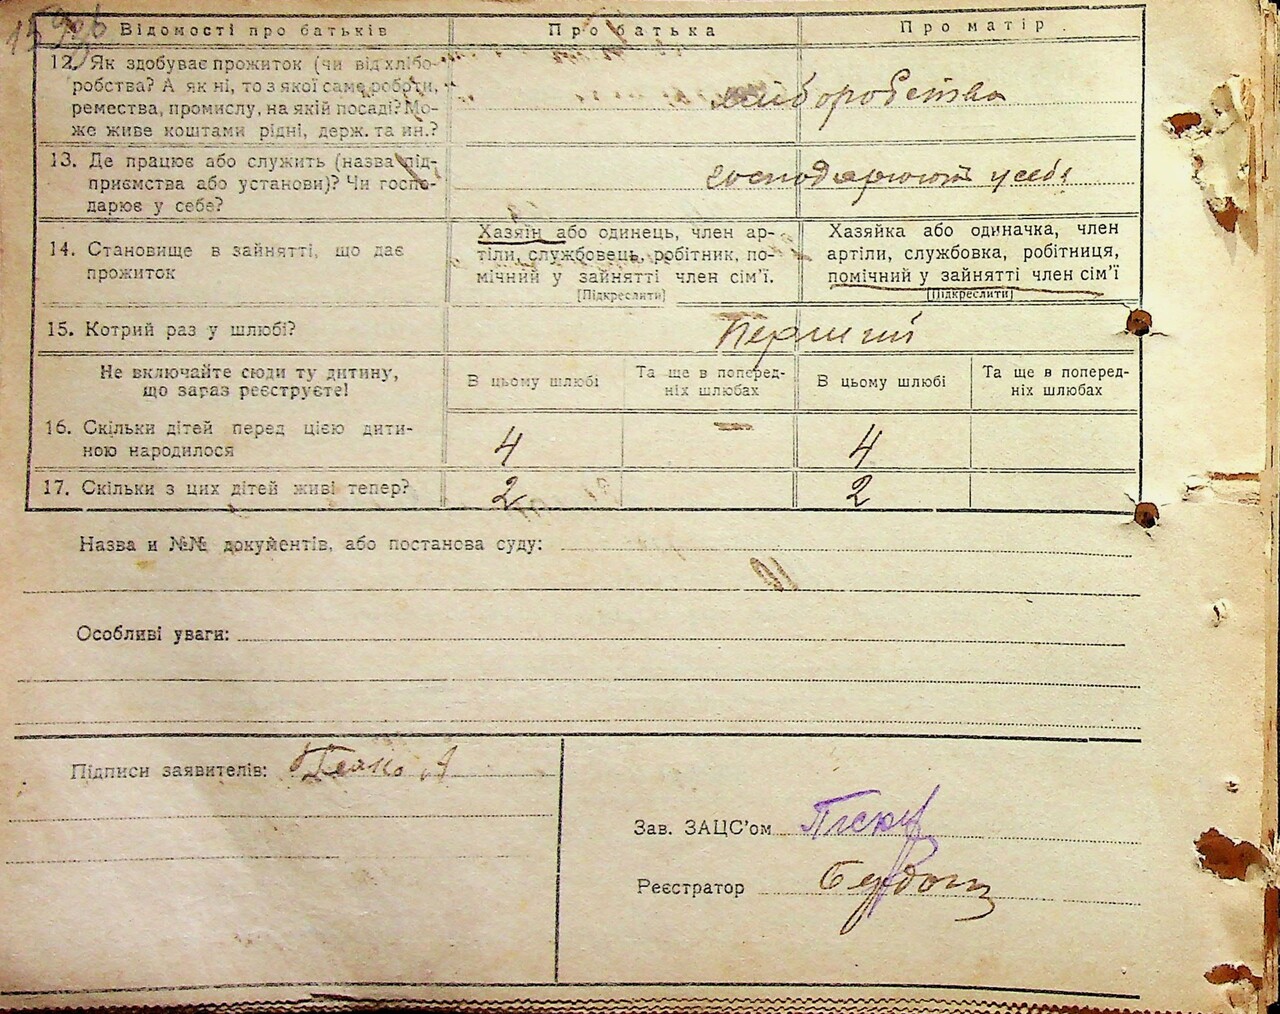 Відомості про батьків Про батька Про матір
12. Як здобуває прожиток (чи від хлібо-
робства? А як ні, то з якої саме роботи,
ремества, промислу, на якій посаді? Мо-
же живе коштами рідні, держ. та ин.?
хліборобства
13. Де працює або служить (назва під-
приємства або установи)? Чи госпо-
дарює у себе?
господарюють у себе
14. Становище в зайнятті, що дає
прожиток
Хазяїн або одинець, член ар-
тіли, службовець, робітник, по-
мічний у зайнятті член сім'ї.
[Підкреслити]
Хазяйка або одиначка, член
артіли, службовка, робітниця,
помічний у зайнятті член сім'ї
[Підкреслити]
15. Котрий раз у шлюбі? Перший
Не включайте сюди ту дитину,
що зараз реєструєте!
В цьому шлюбі
Та ще в поперед-
ніх шлюбах
В цьому шлюбі
Та ще в поперед-
ніх шлюбах
16. Скільки дітей перед цією дити-
ною народилося
4 — 4
17. Скільки з цих дітей живі тепер? 2 2
Назва и №№ документів, або постанова суду:
Особливі уваги:
Підписи заявителів:
Зав. ЗАЦС'ом
Реєстратор